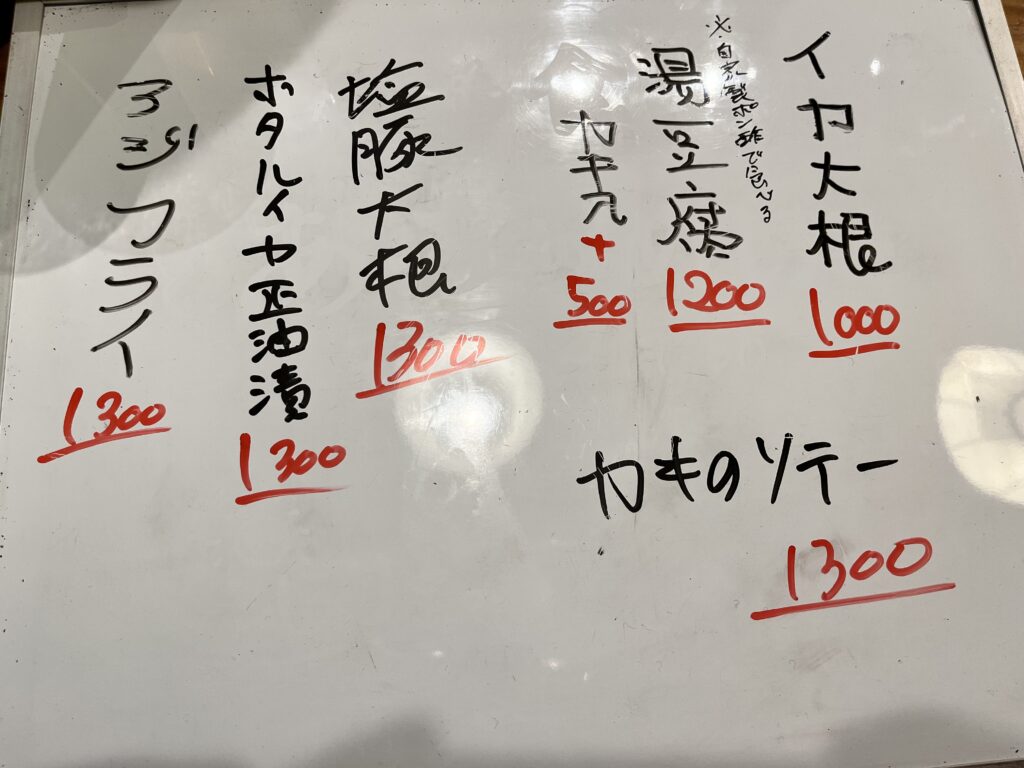 イカ大根
1000
※自家製ポン酢で食べる
湯豆腐
1200
カキ入
+
500
塩豚大根
1300
ホタルイカ正油漬
1300
アジフライ
1300
カキのソテー
1300